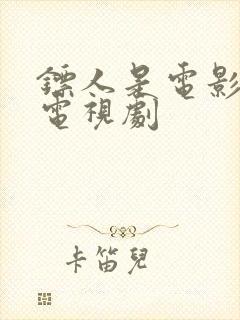 鏢人是電影
電視劇
卡笛兒